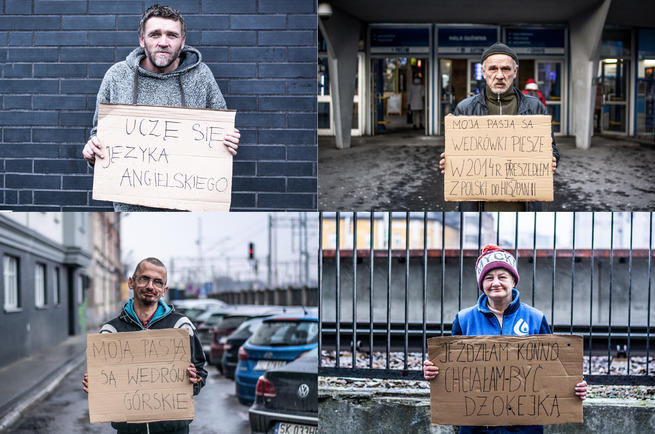 UCZĘ SIĘ
JĘZYKA
ANGIELSKIEGO
HALA GŁÓWNA
MOJĄ PASJĄ SĄ
WĘDRÓWKI PIESZE
W 2014 R. PRZESZEDŁEM
Z POLSKI DO HISZPANII
MOJĄ PASJĄ
SĄ WĘDRÓWKI
GÓRSKIE
NYC
JEŹDZIŁAM KONNO
CHCIAŁAM BYĆ
DŻOKEJKĄ